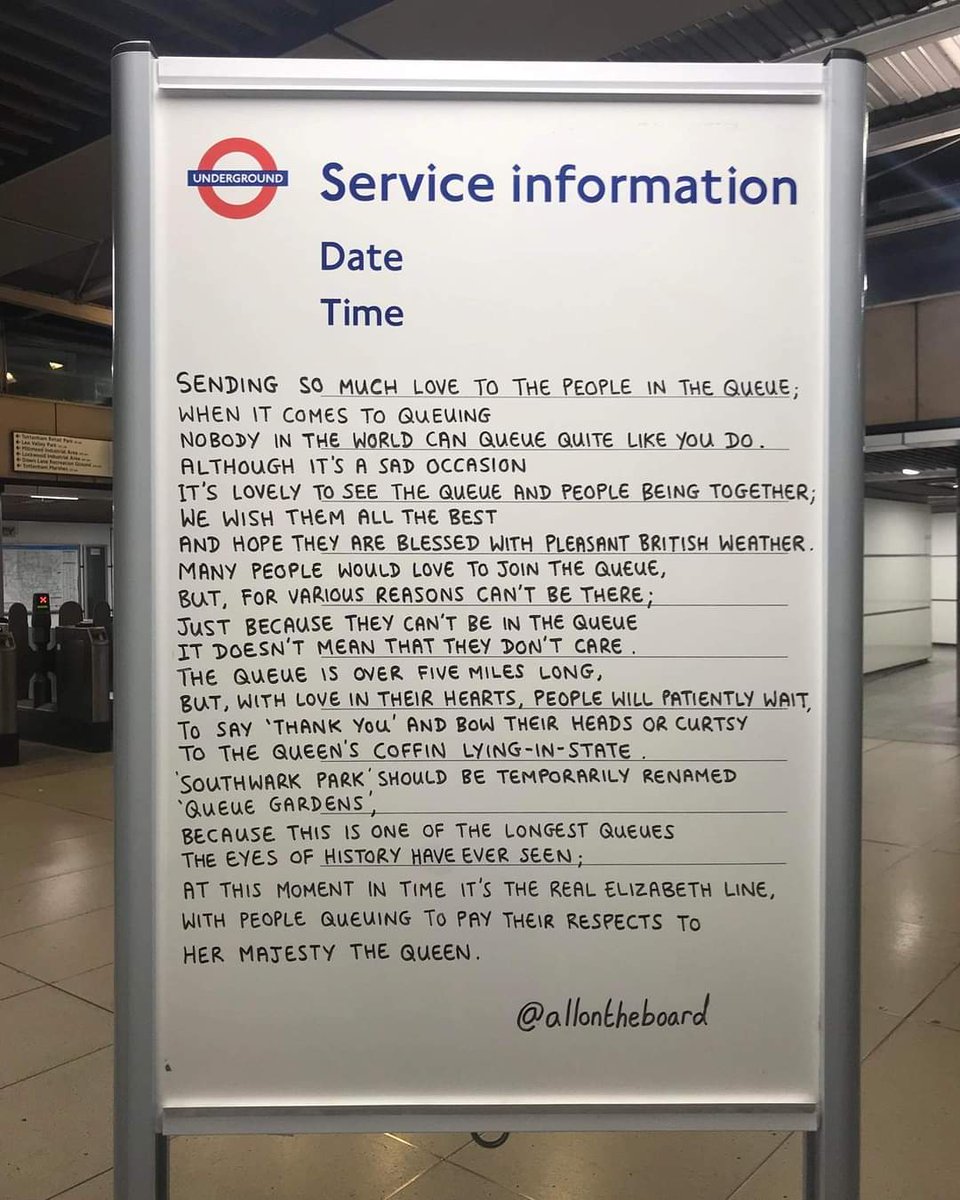 UNDERGROUND
Service information
Date
Time
SENDING SO MUCH LOVE TO THE PEOPLE IN THE QUEUE;
WHEN IT COMES TO QUEUING
NOBODY IN THE WORLD CAN QUEUE QUITE LIKE YOU DO.
ALTHOUGH IT'S A SAD OCCASION
IT'S LOVELY TO SEE THE QUEUE AND PEOPLE BEING TOGETHER;
WE WISH THEM ALL THE BEST
AND HOPE THEY ARE BLESSED WITH PLEASANT BRITISH WEATHER.
MANY PEOPLE WOULD LOVE TO JOIN THE QUEUE,
BUT, FOR VARIOUS REASONS CAN'T BE THERE;
JUST BECAUSE THEY CAN'T BE IN THE QUEUE
IT DOESN'T MEAN THAT THEY DON'T CARE.
THE QUEUE IS OVER FIVE MILES LONG,
BUT, WITH LOVE IN THEIR HEARTS, PEOPLE WILL PATIENTLY WAIT,
TO SAY 'THANK YOU' AND BOW THEIR HEADS OR CURTSY
TO THE QUEEN'S COFFIN LYING-IN-STATE.
'SOUTHWARK PARK' SHOULD BE TEMPORARILY RENAMED
'QUEUE GARDENS',
BECAUSE THIS IS ONE OF THE LONGEST QUEUES
THE EYES OF HISTORY HAVE EVER SEEN;
AT THIS MOMENT IN TIME IT'S THE REAL ELIZABETH LINE,
WITH PEOPLE QUEUING TO PAY THEIR RESPECTS TO
HER MAJESTY THE QUEEN.
@allontheboard
Tottenham Retail Park
Lee Valley Park
Millmead Industrial Area
Lockwood Industrial Area
Down Lane Recreation Ground
Tottenham Marshes